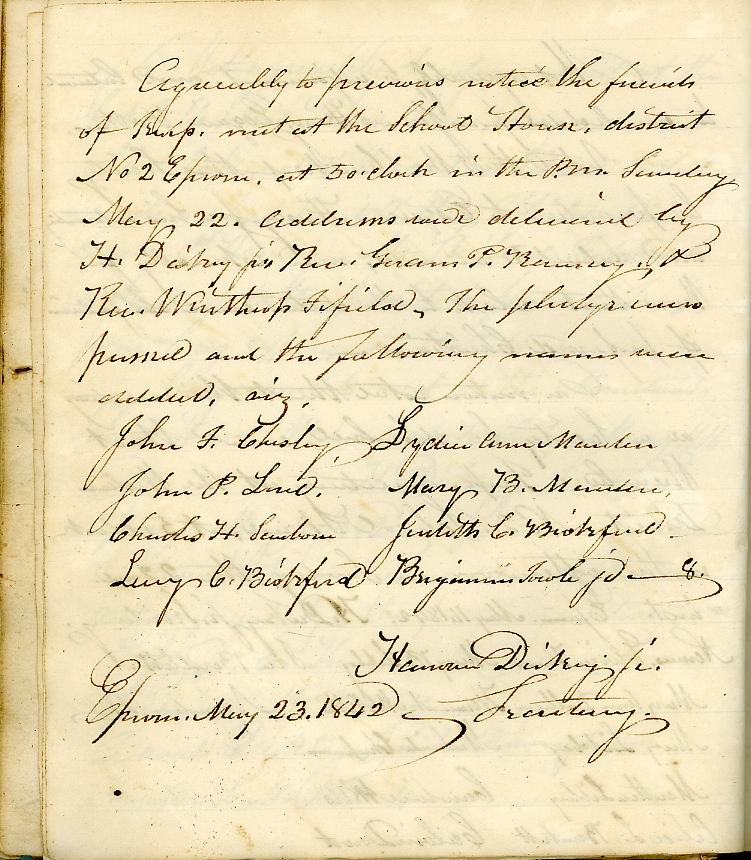 Agreeably to previous notice the friends
of Temp. met at the School House, district
No 2 Epsom, at 5 o'clock in the P.M. Sunday
May 22. Addresses were delivered by
H. Dickey jr. Rev. P. Ramsey, &
Rev. Winthrop Fifield, The pledge was
passed and the following names were
added, viz,
John F. Chesley, Lydia Ann Marden
John P. Lord. Mary B. Marden,
Charles H. Sanborn Judith C. Bickford
Lucy C. Bickford Benjamin Towle jr — 8.
Hanover Dickey jr.
Epsom. May 23. 1842 Secretary.